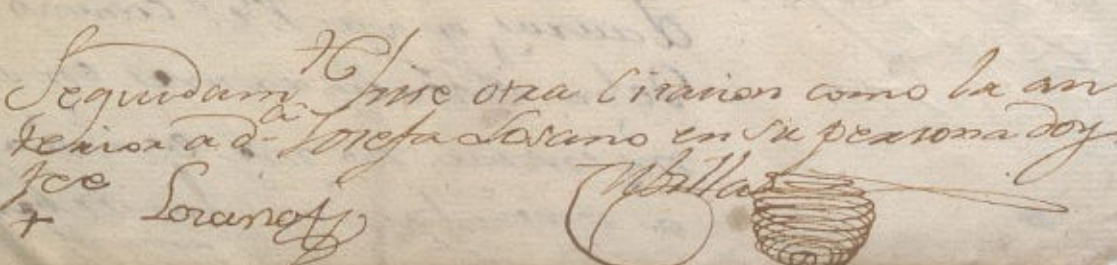 Seguidamte hise otra Citacion como la an
terior a da Josefa Losano en su persona doy
fee Lozano
Ubillas